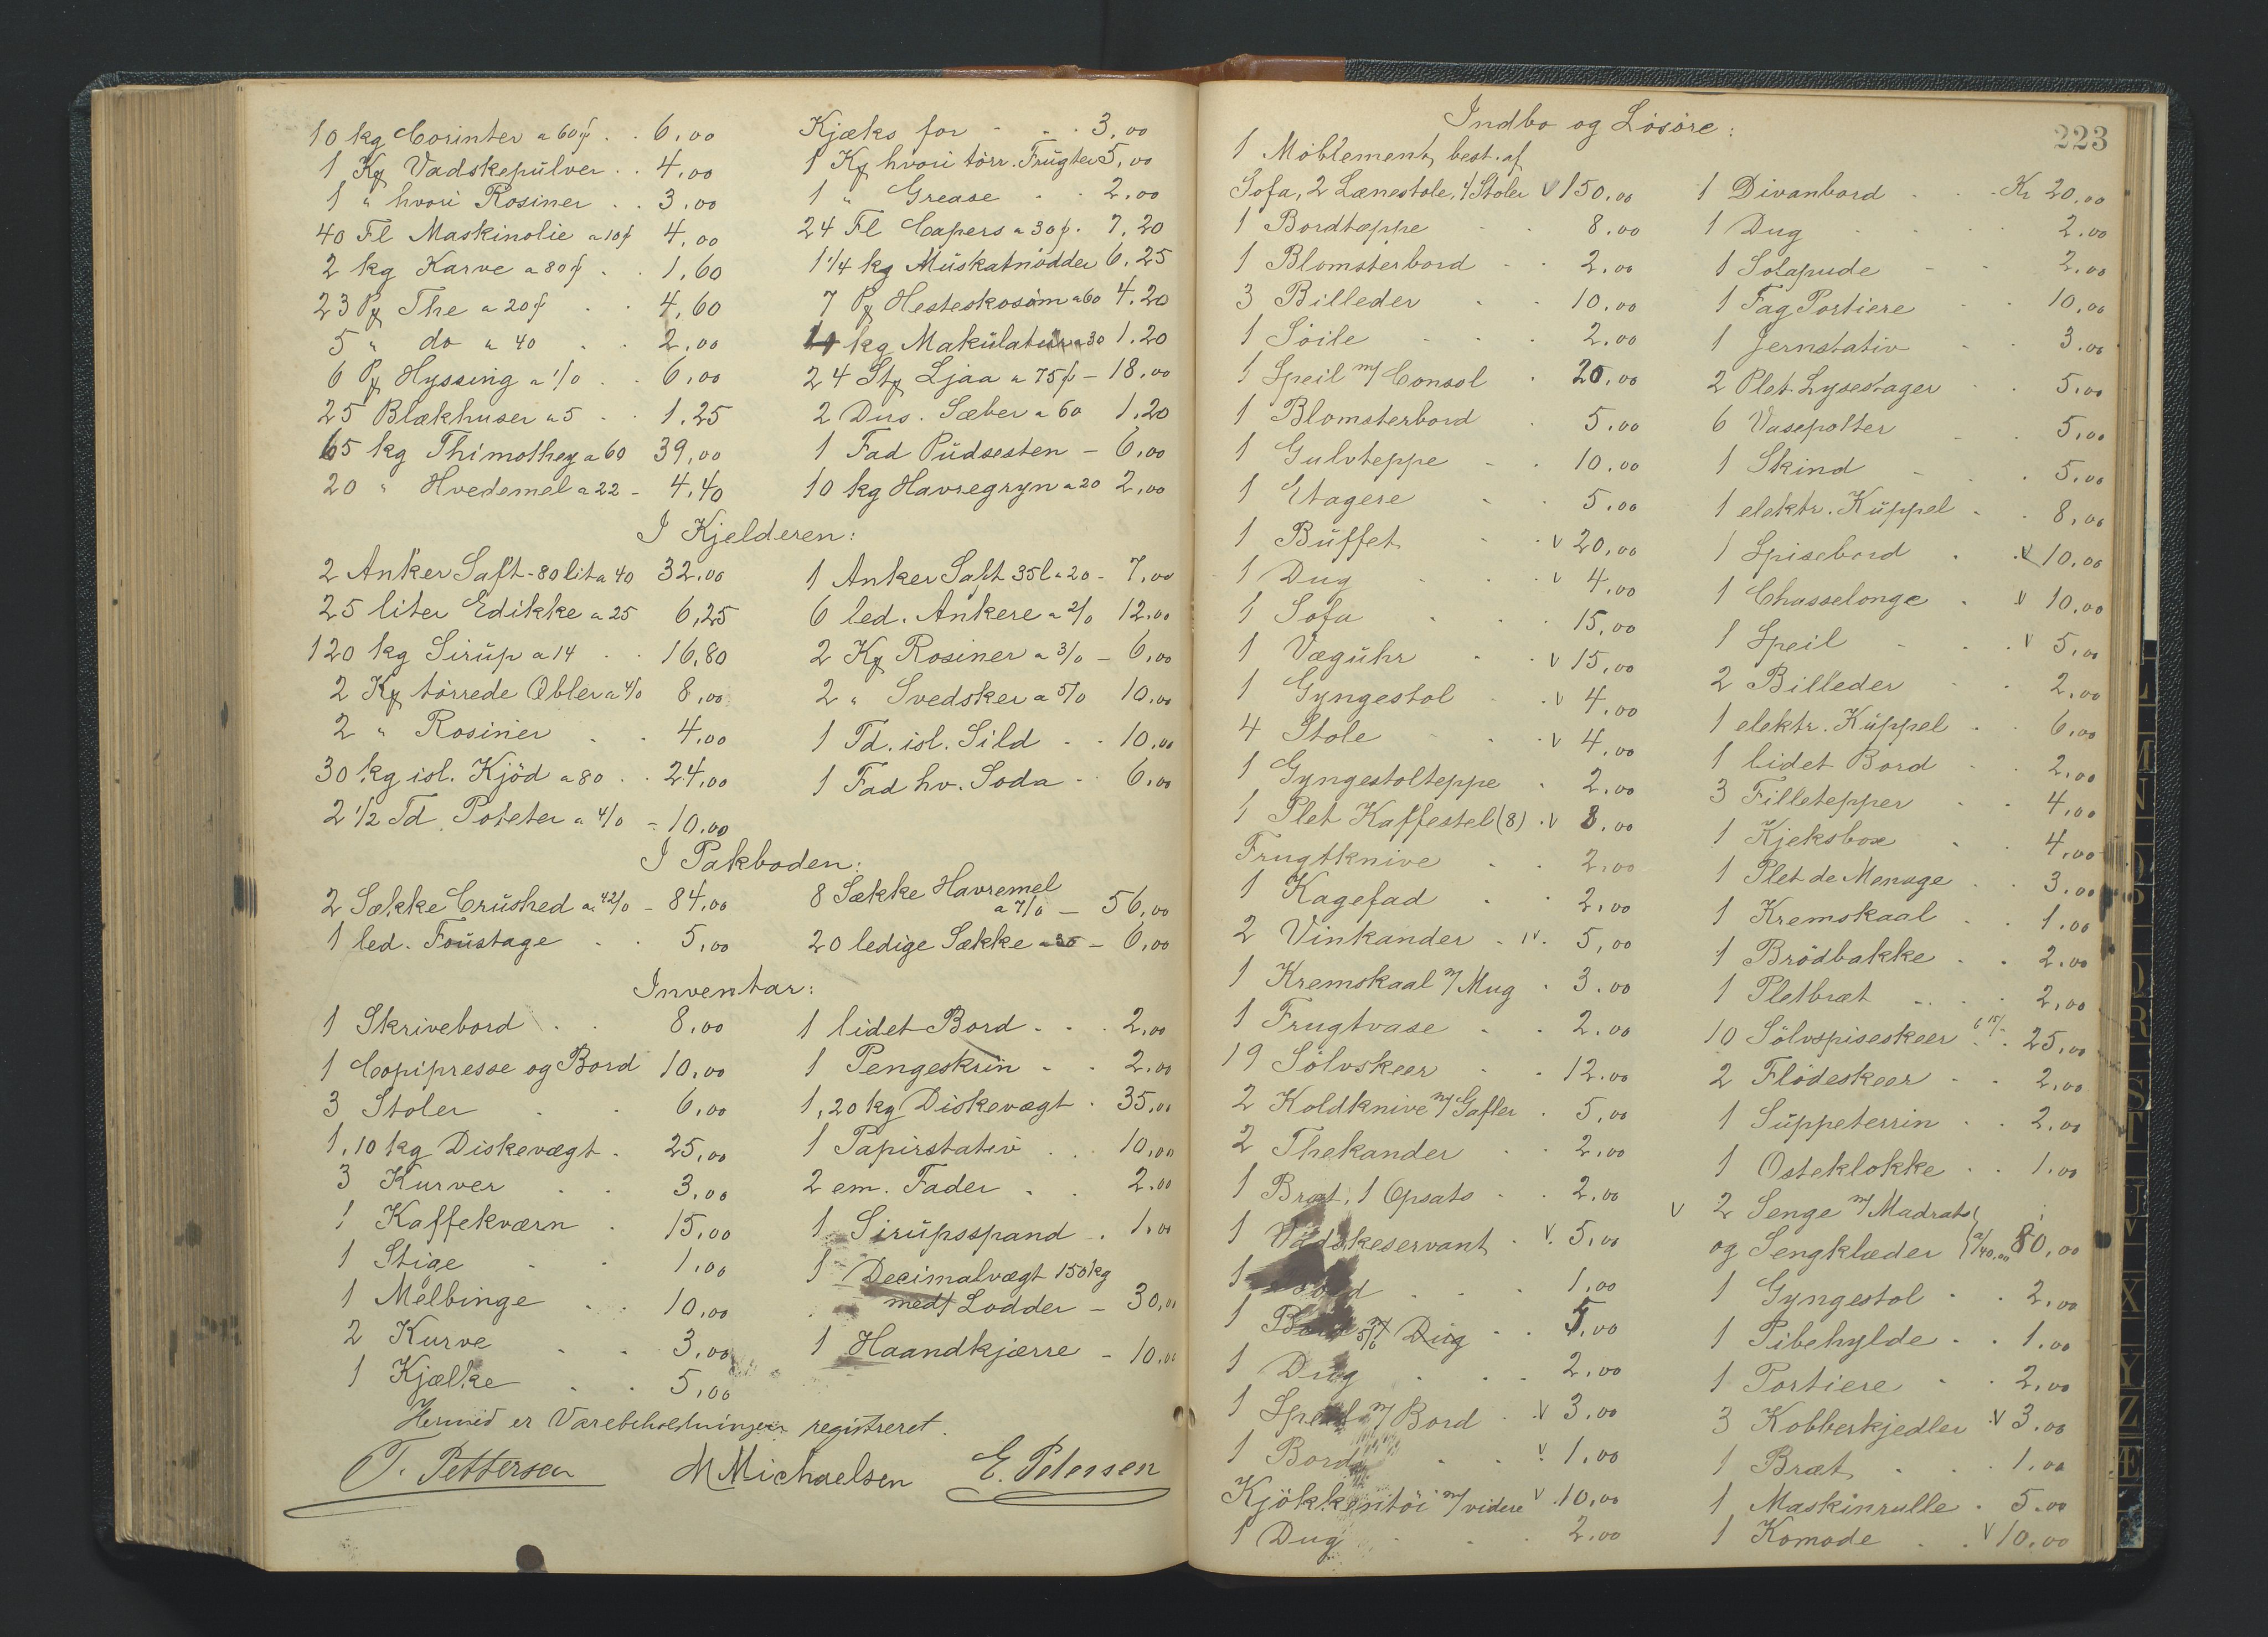 10 kg Corinter a 60 . . 6,00
1 Ks Vadskepulver . . 4,00
1 " hvori Rosiner . . 3,00
40 Fl Maskinolie a 10 4,00
2 kg Karve a 80 . . 1,60
23 Pk The a 20 . . 4,60
5 " do a 40 . . 2,00
6 Pk Hyssing a 1/0 . . 6,00
25 Blækhuser a 5 . . 1,25
65 kg Thimothey a 60 39,00
20 " Hvedemel a 22 - 4,40
Kjæks for - . . 3,00
1 Ks hvori törr. Frugter 5,00
1 " Grease . . 2,00
24 Fl Capers a 30 . 7,20
1 1/4 kg Muskatnödder 6,25
7 Pk Hesteskosöm a 60 4,20
4 kg Makulatur a 30 1,20
24 Stk Ljaa a 75 - 18,00
2 Dus. Sæber a 60 1,20
1 Fad Pudsesten - 6,00
10 kg Havregryn a 20 2,00
I Kjelderen:
2 Anker Saft - 80 lit a 40 32,00
25 liter Edikke a 25 6,25
120 kg Sirup a 14 . . 16,80
2 Ks törrede Æbler a 4/0 8,00
2 " Rosiner . . 4,00
30 kg isl. Kjöd a 80 . . 24,00
2 1/2 Td. Poteter a 4/0 - 10,00
1 Anker Saft 35 l a 20 - 7,00
6 led. Ankere a 2/0 12,00
2 Ks Rosiner a 3/0 - 6,00
2 " Svedsker a 5/0 10,00
1 Td. isl. Sild . . 10,00
1 Fad hv. Soda . . 6,00
I Pakboden:
2 Sække Crushed a 42/0 - 84,00
1 led. Foustage . . 5,00
8 Sække Havremel
a 7/0 - 56,00
20 ledige Sække a 30 - 6,00
Inventar:
1 Skrivebord . . 8,00
1 Copipresse og Bord 10,00
3 Stoler . . 6,00
1, 10 kg Diskevægt . 25,00
3 Kurver . . 3,00
1 Kaffekværn . 15,00
1 Stige . . 1,00
1 Melbinge . . 10,00
2 Kurve . . 3,00
1 Kjælke . . 5,00
1 lidet Bord . . . 2,00
1 Pengeskrin . . 2,00
1, 20 kg Diskevægt . 35,00
1 Papirstativ . . . 10,00
2 em. Fader . . 2,00
1 Sirupsspand . . 1,00
1 Decimalvægt 150 kg
med Lodder - 30,00
1 Haandkjærre - 10,00
Hermed er Varebeholdningen registreret.
T. Pettersen M Michaelsen E. Petersen
223
Indbo og Lösöre:
1 Möblement, best. af
Sofa, 2 Lænestole, 4 Stoler v 150,00
1 Bordteppe . . 8,00
1 Blomsterbord . . 2,00
3 Billeder . . 10,00
1 Söile . . . 2,00
1 Speil m/ Consol . 20,00
1 Blomsterbord . 5,00
1 Gulvteppe . . 10,00
1 Etagere . . 5,00
1 Buffet . . v 20,00
1 Dug . . . v 4,00
1 Sofa . . . 15,00
1 Væguhr . . v 15,00
1 Gyngestol . . v 4,00
4 Stole . . . v 4,00
1 Gyngestolteppe . 2,00
1 Plet Kaffestel (8) . v 8,00
Frugtknive . . 2,00
1 Kagefad . . 2,00
2 Vinkander . v . 5,00
1 Kremskaal m/ Mug . 3,00
1 Frugtvase . . 2,00
19 Sölvskeer . . 12,00
2 Koldknive m/ Gafler . 5,00
2 Thekander . . 2,00
1 Bræt, 1 Opsats . . 2,00
1 Vadskeservant . v. 5,00
1 Bord . . . 1,00
1 Bord m/ Dug . . 5,00
1 Dug . . . 2,00
1 Speil m/ Bord . v 3,00
1 Bord . . v 1,00
Kjökkentöi m/ videre v 10,00
1 Dug . . . 2,00
1 Divanbord . . Kr 20,00
1 Dug . . . 2,00
1 Sofapude . . 2,00
1 Fag Portiere . . 10,00
1 Jernstativ . . 3,00
2 Plet Lysestager . . 5,00
6 Vasepotter . . 5,00
1 Skind . . 5,00
1 elektr. Kuppel . . 8,00
1 Spisebord . . v 10,00
1 Chasselonge . v 10,00
1 Speil . . . v 5,00
2 Billeder . . 2,00
1 elektr. Kuppel . . 6,00
1 lidet Bord . . 2,00
3 Filletepper . . 4,00
1 Kjeksbox . . 4,00
1 Plet de Menage . . 3,00
1 Kremskaal . . 1,00
1 Brödbakke . . 2,00
1 Pletbræt . . . 2,00
10 Sölvspiseskeer 6 15/- . 25,00
2 Flödeskeer . . 2,00
1 Suppeterrin . . 2,00
1 Osteklokke . . 1,00
v 2 Senge m/ Madrats
og Sengklæder a/ 40,00 80,00
1 Gyngestol . . 2,00
1 Pibehylde . . 1,00
1 Portiere . . 2,00
3 Kobberkjedler . v 3,00
1 Bræt . . . 1,00
1 Maskinrulle . 5,00
1 Komode . . v 10,00